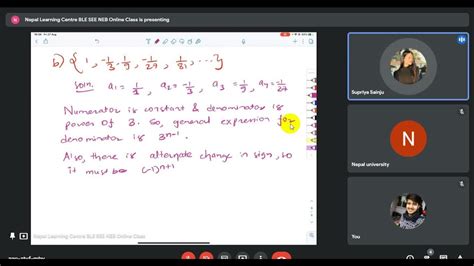 Nepal Learning Centre BLE SEE NEB Online Class is presenting
b) { 1, -1/3, 1/9, -1/27, 1/81, ...}
Soln. a1 = 1/3, a2 = -1/3, a3 = 1/9, a4 = -1/27
Numerator is constant & denominator is
power of 3. So, general expression for
denominator is 3^n-1.
Also, there is alternate change in sign, so
it must be (-1)^n+1
Nepal Learning Centre BLE SEE NEB Online Class
Supriya Sainju
N
Nepal university
You